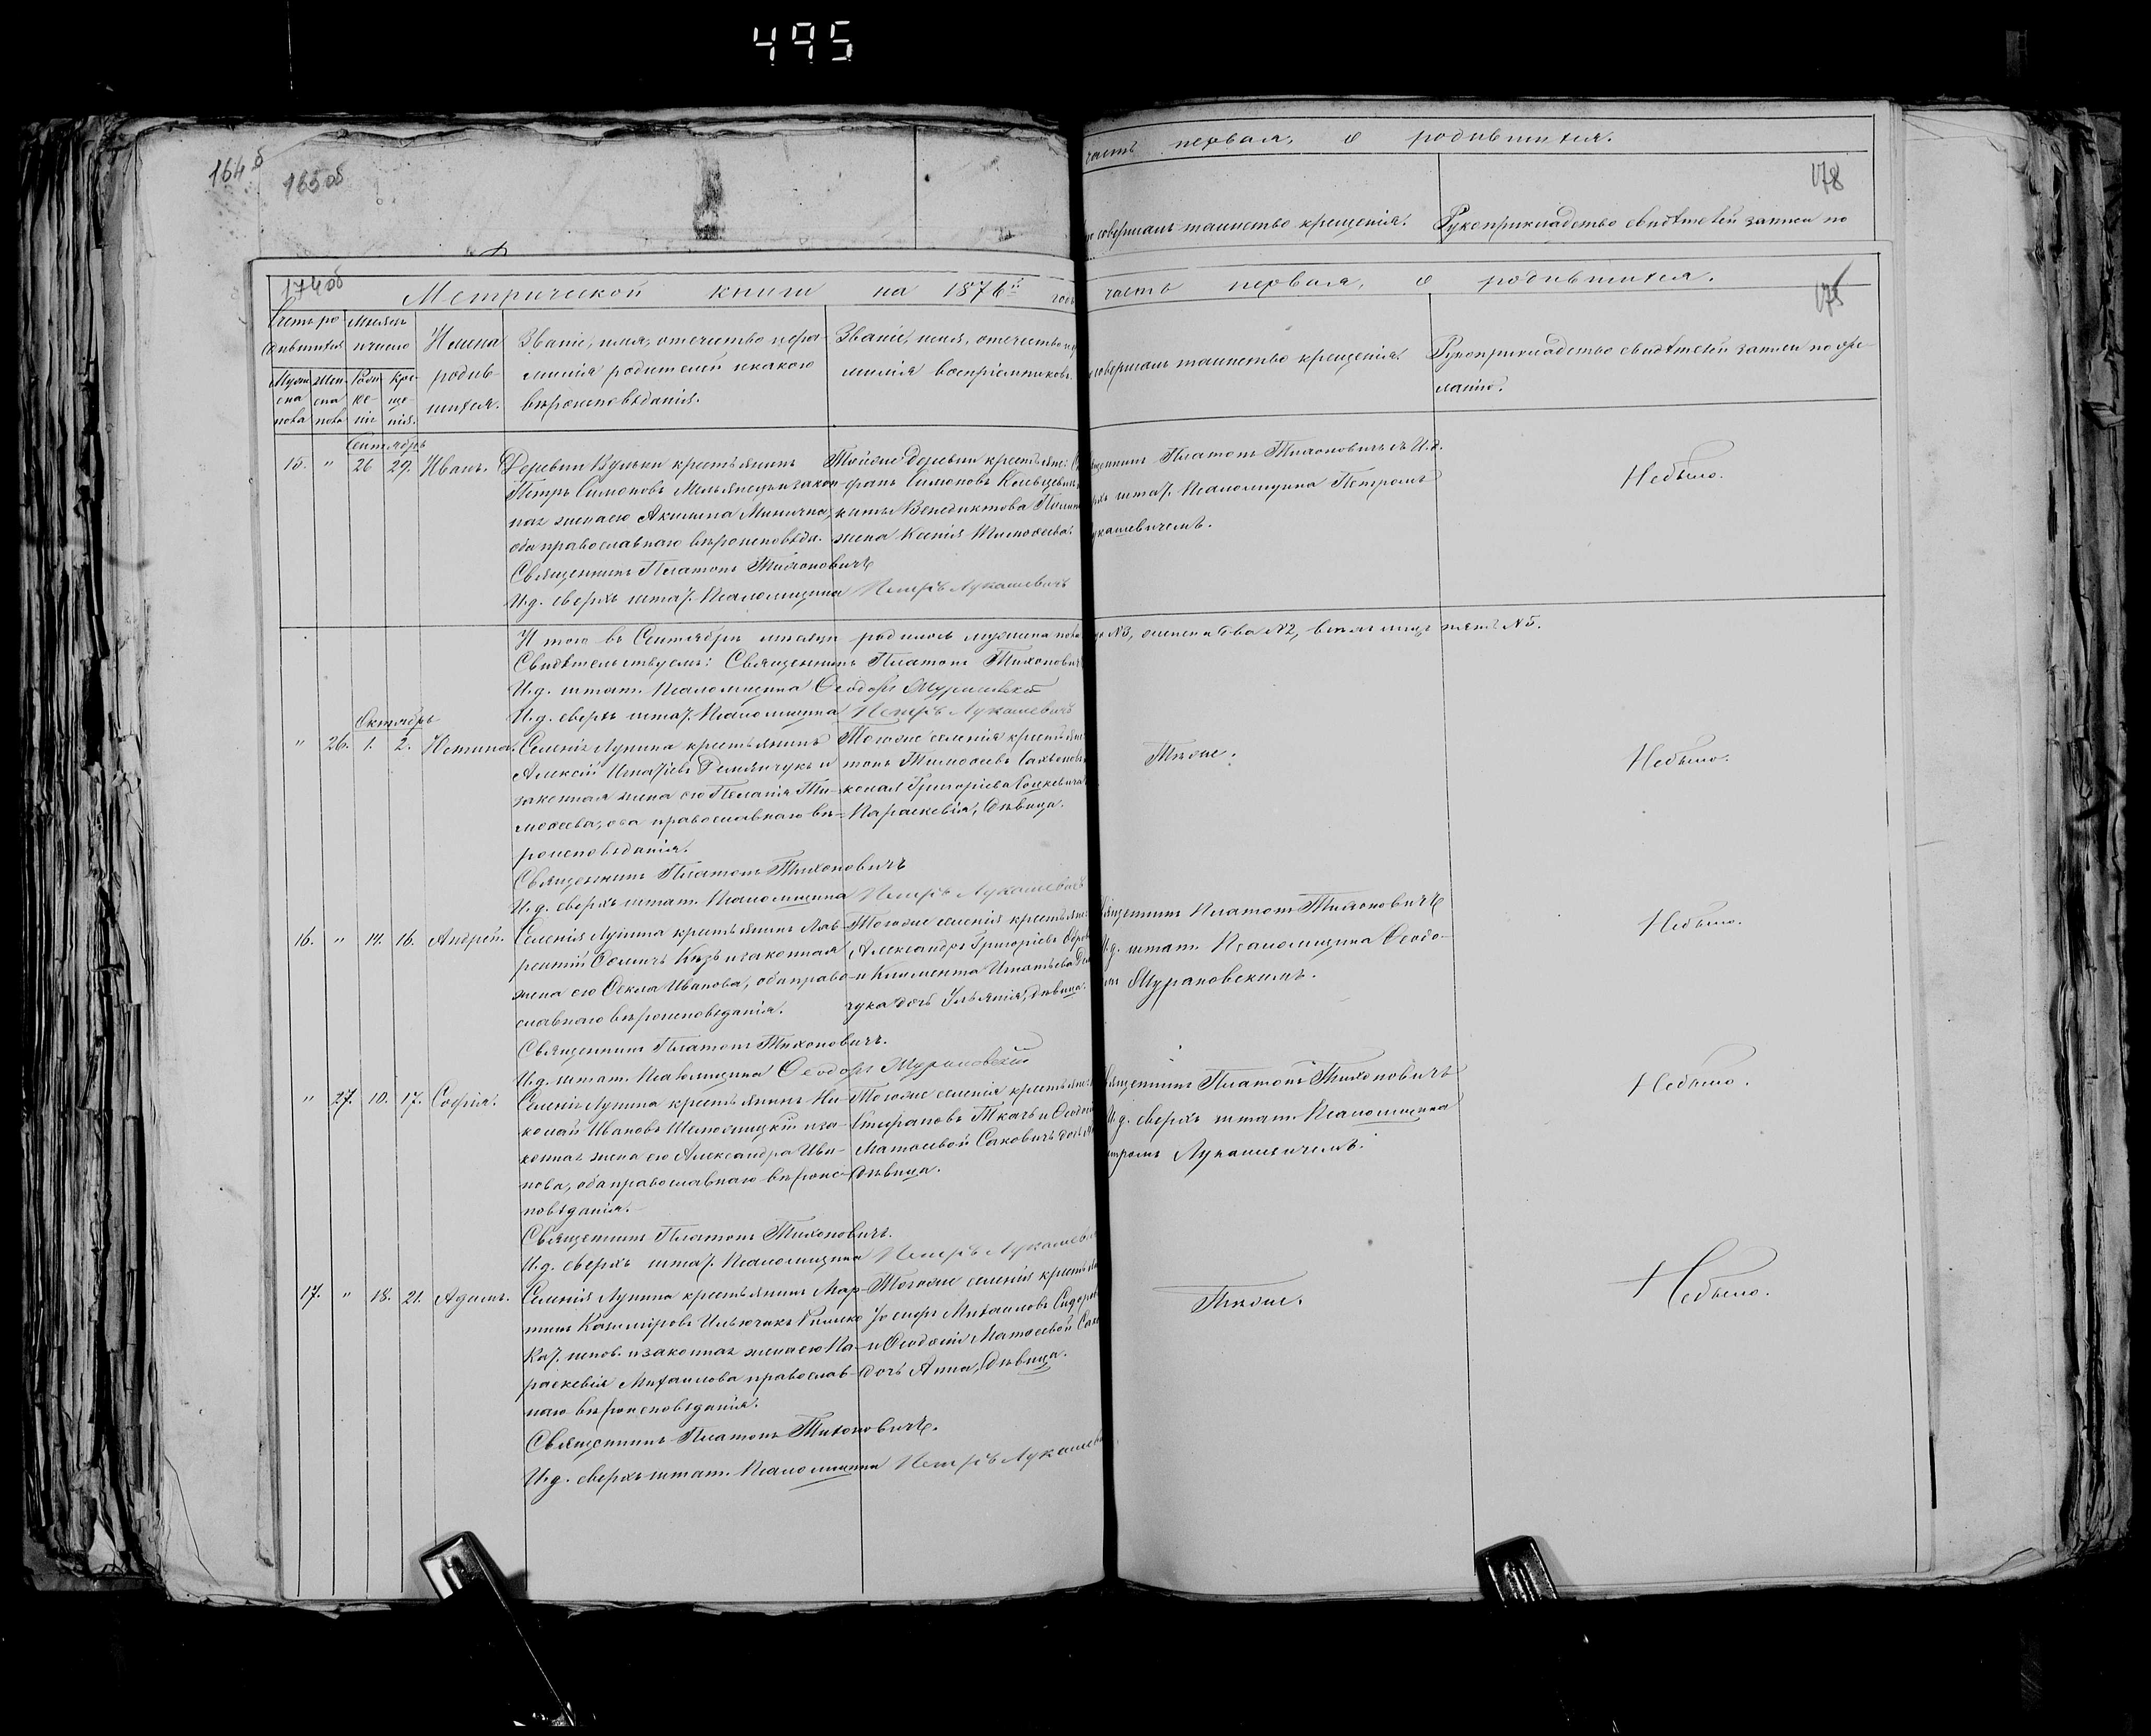 495
164б
165об
часть первая, о родившихся.
178
совершалъ таинство крещенія.
Рукоприкладство свидѣтелей записи по
174об
Метрической книги на 1876й годъ
часть первая, о родившихся.
175
Счетъ ро-
дившихся
Мѣсяцъ
и число
Муже-
ска
пола
Жен-
ска
пола
Рож-
де-
нія
Кре-
ще-
нія.
Имена
родив-
шихся.
Званіе, имя, отечество и фа-
милія родителей и какого
вѣроисповѣданія.
Званіе, имя, отечество и ф
милія воспріемниковъ.
совершалъ таинство крещенія
Рукоприкладство свидѣтелей записи по же-
ланію.
Сентябрь
15. " 26 29. Иванъ.
Деревни крестьянинъ
Петръ Симоновъ и закон-
ная жена его Акилина
оба православнаго вѣроисповѣда.
Священникъ Платонъ Тихоновичъ
И.д. сверхъ штат. Псаломщика Петръ Лукашевичъ
Тойже деревни крестьяне:
фанъ Симоновъ
киты Венедиктова
жена Ксенія Тимоѳеева.
щенникъ Платонъ Тихоновичъ съ И.д.
рхъ штат. Псаломщика Петромъ
укашевичемъ.
Небыло.
Итого въ Сентябрѣ мѣсяцѣ родилось мужеска пола № 3, женска пола № 2, всего пять № 5.
Свидѣтельствуемъ: Священникъ Платонъ Тихонович
И.д. штат. Псаломщика Ѳеодоръ
И.д. сверхъ штат. Псаломщика Петръ Лукашевичъ
Октябрь
" 26. 1. 2. Устина.
Селенія Лунина крестьянинъ
Алексій Игнатіевъ и
законная жена его Пелагія Ти-
моѳеева, оба православнаго вѣ-
роисповѣданія.
Священникъ Платонъ Тихоновичъ
И.д. сверхъ штат. Псаломщика Петръ Лукашевичъ
Тогоже селенія крестьяне
тонъ Тимоѳеевъ
колая Григоріева
Параскевія, дѣвица.
Тѣже.
Небыло.
16. " 14. 16. Андрей.
Селенія Лунина крестьянинъ Лав-
рентій и законная
жена его Ѳекла Иванова, оба право-
славнаго вѣроисповѣданія.
Священникъ Платонъ Тихоновичъ.
И.д. штат. Псаломщика Ѳеодоръ
Тогоже селенія крестьяне
Александръ Григоріевъ
и Климента Игнатьева
чука дочь Ульянія, дѣвица.
ященникъ Платонъ Тихоновичъ
И.д. штат. Псаломщика Ѳеодо-
Мурановскимъ.
Небыло.
" 27. 10. 17. Софія.
Селенія Лунина крестьянинъ Ни-
колай Ивановъ и за-
конная жена его Александра Ива-
нова, оба православнаго вѣроис-
повѣданія.
Священникъ Платонъ Тихоновичъ.
И.д. сверхъ штат. Псаломщика Петръ Лукашеви
Тогоже селенія крестьяне
Стефановъ Ткачъ и
Матѳеевой Саковичъ дочь
дѣвица.
ященникъ Платонъ Тихоновичъ
И.д. сверхъ штат. Псаломщика
тромъ Лукашевичемъ.
Небыло.
17. " 18. 21. Адамъ.
Селенія Лунина крестьянинъ Мар-
тинъ Казиміровъ Римско
Кат. испов. и законная жена его Па-
раскевія Михаилова православ-
наго вѣроисповѣданія.
Священникъ Платонъ Тихоновичъ.
И.д. сверхъ штат. Псаломщика Петръ Лукашев
Тогоже селенія крестьян
Іосифъ Михаиловъ
и Ѳеодосіи Матѳеевой
дочь Анна, дѣвица.
Тѣже.
Небыло.